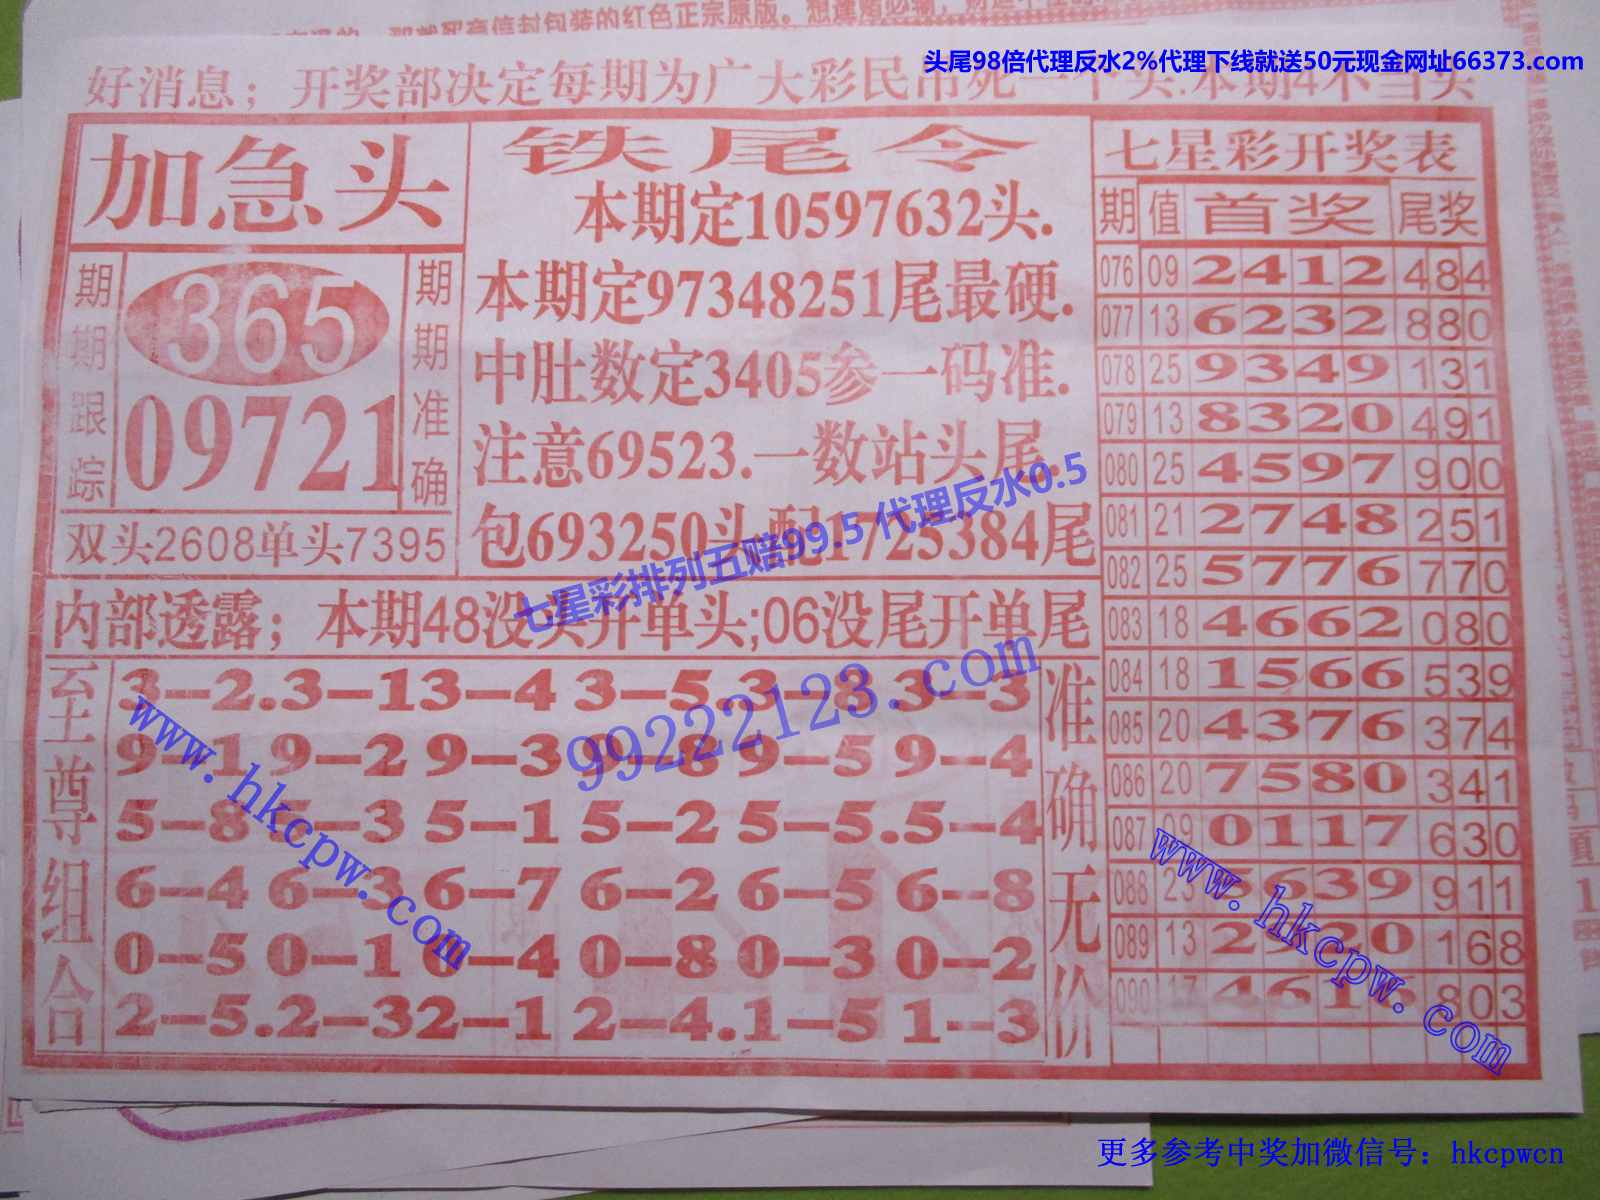 头尾98倍代理反水2%代理下线就送50元现金网址66373.com
好消息；开奖部决定每期为广大彩民吊死一个头.本期4不当头
加急头
期期跟踪
365
09721
期期准确
双头2608单头7395
铁尾令
本期定10597632头.
本期定97348251尾最硬.
中肚数定3405参一码准.
注意69523.一数站头尾.
包693250头配1725384尾
七星彩排列五赔99.5 代理反水0.5
内部透露；本期48没头开单头;06没尾开单尾
99222123.com
至尊组合
3-2.3-13-4 3-5.3-8.3-3
9-19-2 9-3 9-8 9-5 9-4
5-8 5-3 5-1 5-2 5-5.5-4
6-4 6-3 6-7 6-2 6-5 6-8
0-5 0-1 0-4 0-8 0-3 0-2
2-5.2-32-1 2-4.1-5 1-3
准确无价
www.hkcpw.com
七星彩开奖表
期 值 首奖 尾奖
076 09 2412 484
077 13 6232 880
078 25 9349 131
079 13 8320 491
080 25 4597 900
081 21 2748 251
082 25 5776 770
083 18 4662 080
084 18 1566 539
085 20 4376 374
086 20 7580 341
087 09 0117 630
088 23 5639 911
089 13 2 20 168
090 17 461 803
www.hkcpw.com
更多参考中奖加微信号：hkcpwcn